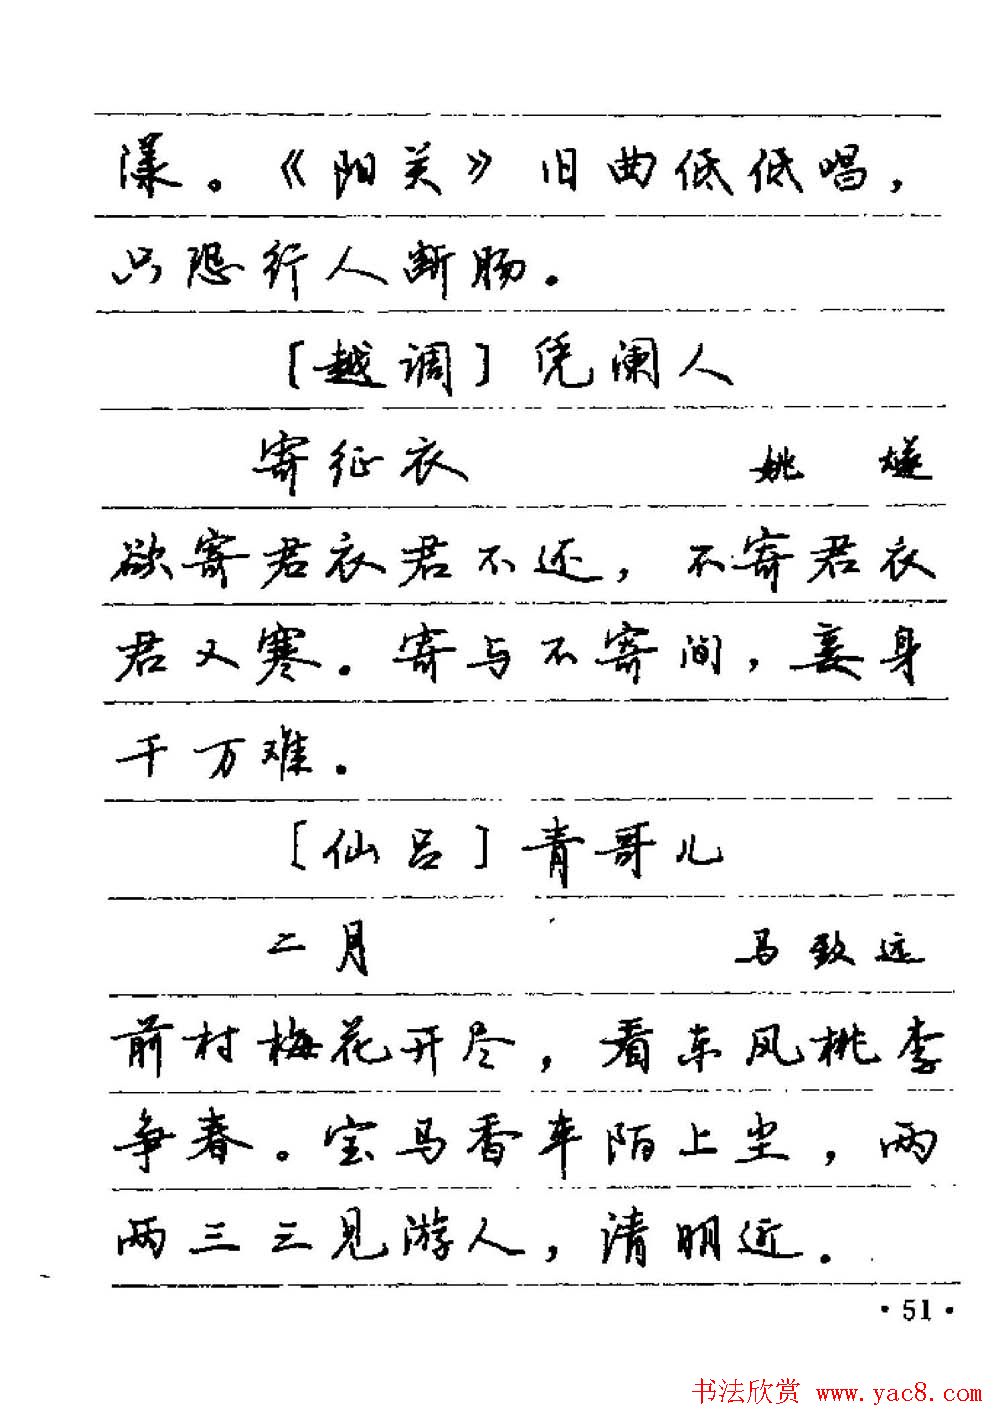 漾。《阳关》旧曲低低唱，
只恐行人断肠。
［越调］凭阑人
寄征衣 姚燧
欲寄君衣君不还，不寄君衣
君又寒。寄与不寄间，妾身
千万难。
［仙吕］青哥儿
二月 马致远
前村梅花开尽，看东风桃李
争春。宝马香车陌上尘，两
两三三见游人，清明近。
·51·
书法欣赏 www.yac8.com